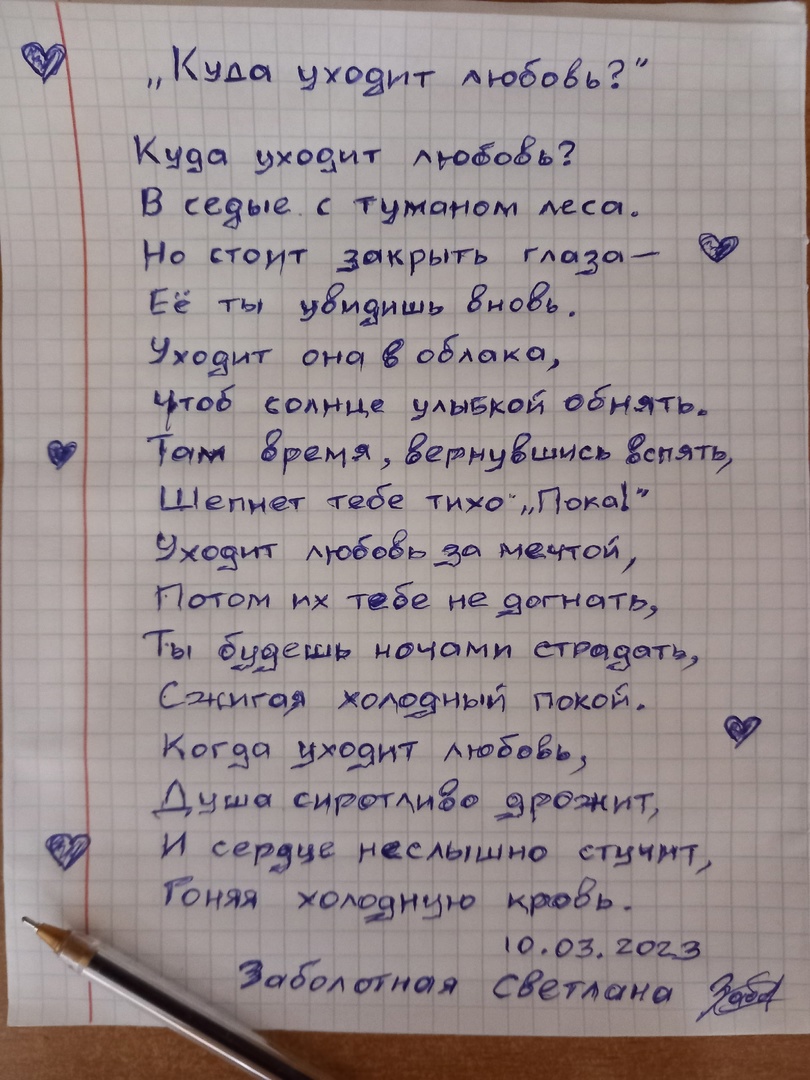 „Куда уходит любовь?"
Куда уходит любовь?
В седые с туманом леса.
Но стоит закрыть глаза—
Её ты увидишь вновь.
Уходит она в облака,
Чтоб солнце улыбкой обнять.
Там время, вернувшись вспять,
Шепнет тебе тихо „Пока!"
Уходит любовь за мечтой,
Потом их тебе не догнать,
Ты будешь ночами страдать,
Сжигая холодный покой.
Когда уходит любовь,
Душа сиротливо дрожит,
И сердце неслышно стучит,
Гоняя холодную кровь.
10.03.2023
Заболотная Светлана